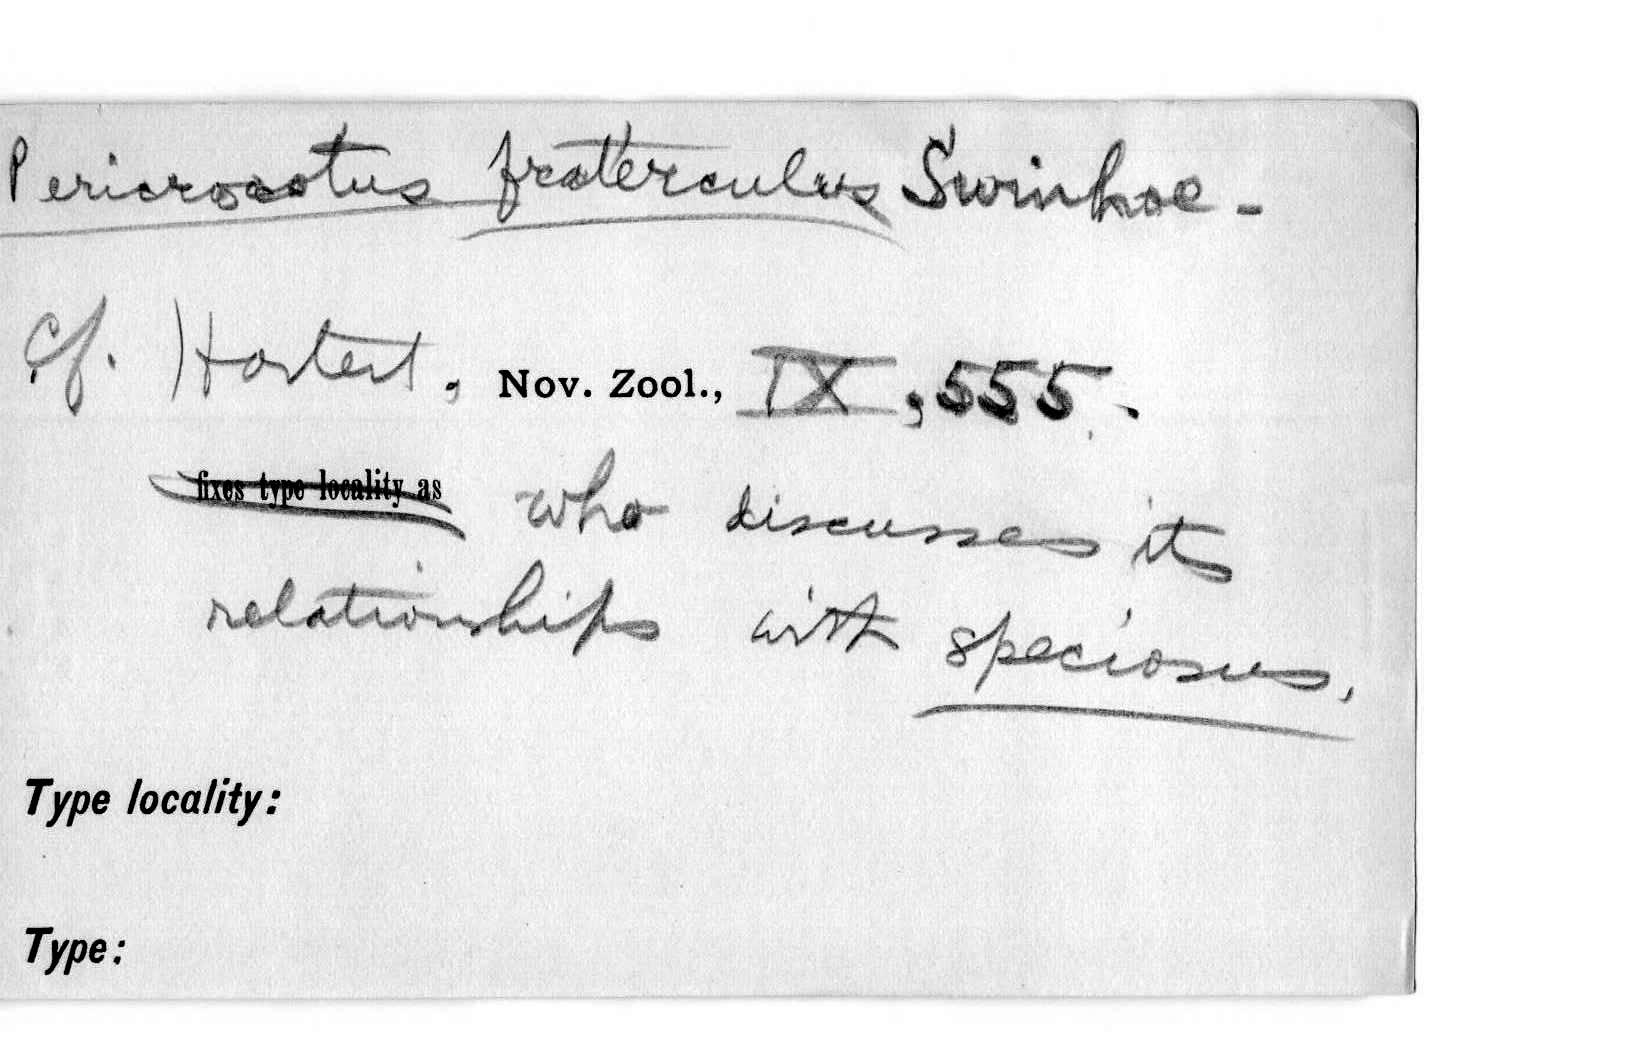 Pericrocotus fraterculus Swinhoe -
cf. Hartert, Nov. Zool., IX, 555.
fixes type locality as who discusses its
relationships with speciosus.
Type locality:
Type: